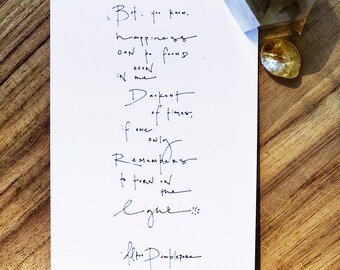 But, you know,
happiness
can be found
even
in the
Darkest
of times,
if one
only
Remembers
to turn on
the
light
Albus Dumbledore